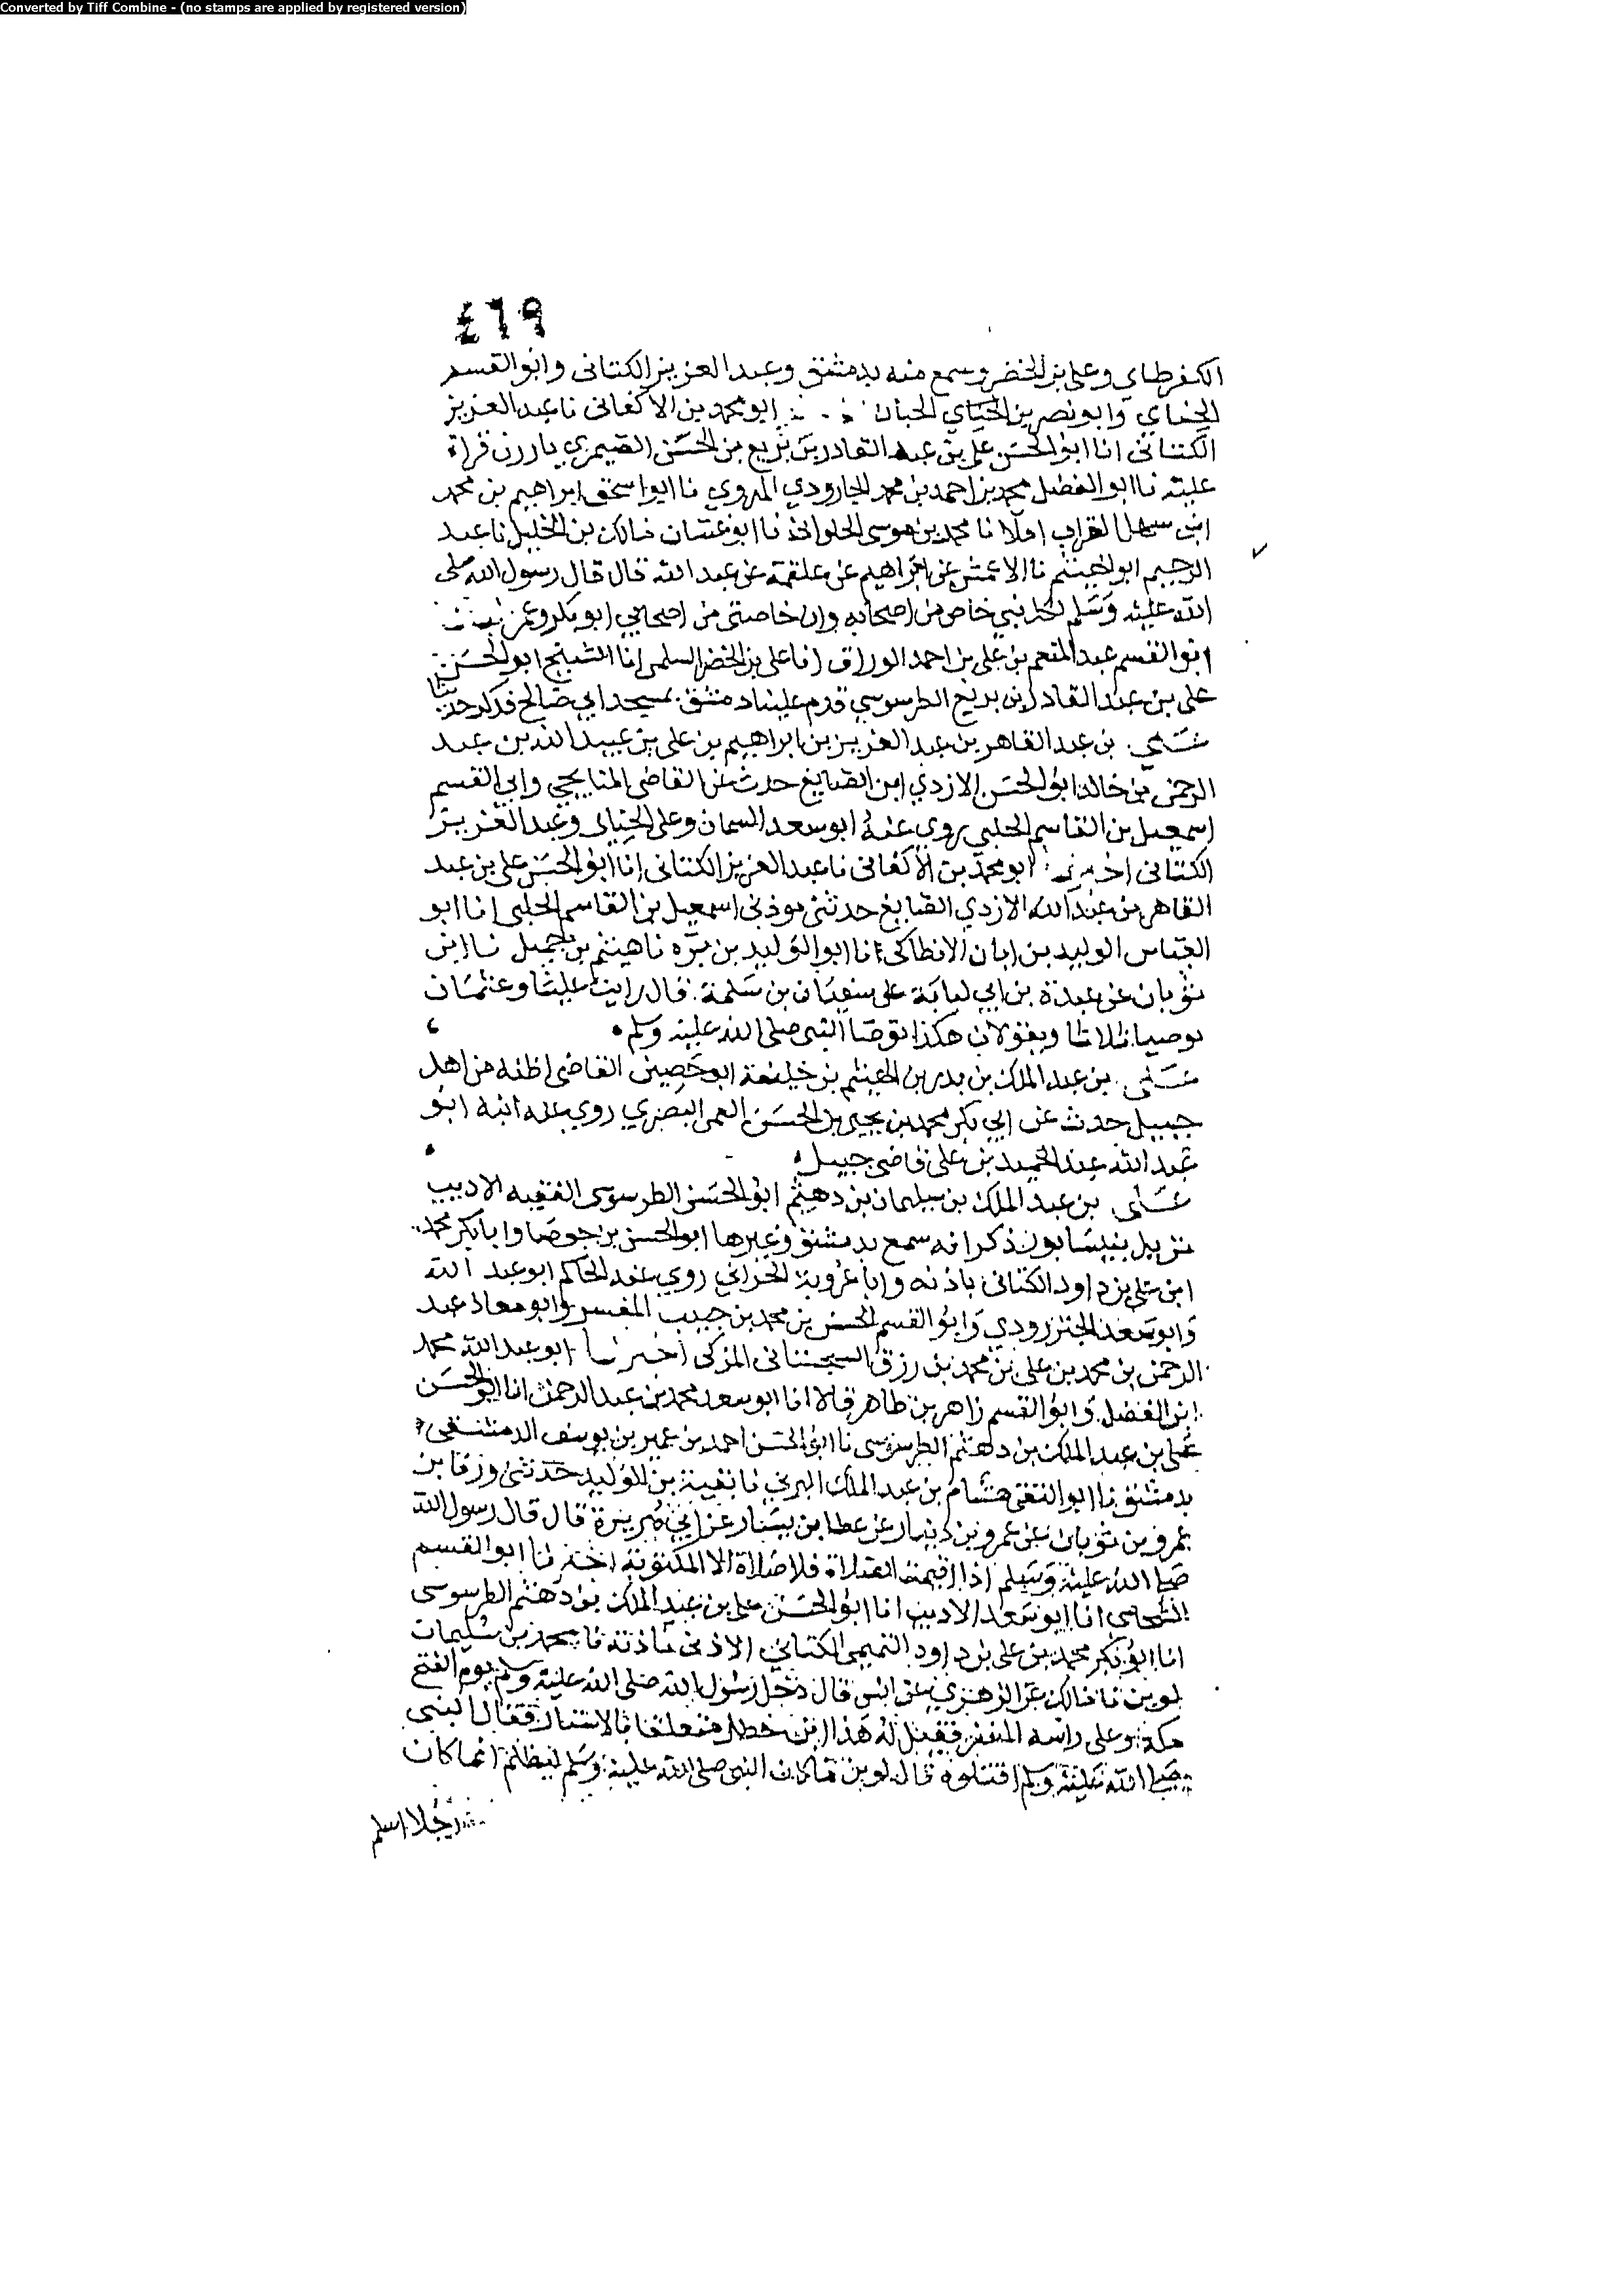 Converted by Tiff Combine - (no stamps are applied by registered version)
٤٦٩
الكفرطابي وعلي بن الخضر وسمع منه بدمشق وعبد العزيز الكتاني وابو القسم
الحناي وابو نصر بن الحبان ابو محمد بن الاكفاني نا عبد العزيز
الكتاني انا ابو الحسن علي بن عبد القادر بن بزيع بن الحسن قراة
عليه نا ابو الفضل محمد بن احمد بن محمد الجارودي الهروي نا ابو اسحق ابراهيم بن محمد
ابن سهل القراب املا نا محمد بن موسى الحلواني نا ابو غسان مالك بن الخليل نا عبد
الرحيم ابو الهيثم نا الاعمش عن ابراهيم عن علقمة عن عبد الله قال قال رسول الله صلى
الله عليه وسلم لكل نبي خاص من اصحابه وان خاصتي من اصحابي ابو بكر وعمر
ابو القسم عبد المنعم بن علي بن احمد الوراق انا علي بن الخضر السلمي انا الشيخ ابو الحسن
علي بن عبد القادر بن بزيع الطرسوسي قدم علينا دمشق بمسجد ابي صالح فذكر حديثا
علي بن عبد القاهر بن عبد العزيز بن ابراهيم بن علي بن عبيد الله بن عبد
الرحمن بن خالد ابو الحسن الازدي ابن الصايغ حدث عن القاضي الميانجي وابي القسم
اسمعيل بن القاسم الحلبي روى عنه ابو سعد السمان وعلي الحناي وعبد العزيز
الكتاني اخبرنا ابو محمد بن الاكفاني نا عبد العزيز الكتاني انا ابو الحسن علي بن عبد
القاهر بن عبد الله الازدي الصايغ حدثني اسمعيل بن القاسم الحلبي انا ابو
العباس الوليد بن ابان الانطاكي انا ابو الوليد بن برد نا هيثم بن جميل نا ابن
ثوبان عن عبدة بن ابي لبابة على سفيان بن سلمة قال رايت عليا وعثمان
يوضيان ثلاثا ويقولان هكذا توضا النبي صلى الله عليه وسلم
علي بن عبد الملك بن بدر بن الهيثم بن خليفة ابو حصين القاضي اظنه من اهل
جبيل حدث عن ابي بكر محمد بن يحيى بن الحسن العمي البصري روى عنه ابنه ابو
عبد الله عبد الحميد بن علي قاضي جبيل
علي بن عبد الملك بن سليمان بن دهثم ابو الحسن الطرسوسي الفقيه الاديب
نزيل نيسابور ذكر انه سمع بدمشق وغيرها ابو الحسن بن جوصا وابا بكر محمد
ابن علي بن داود الكتاني باذنه وابا عروبة الحراني روى عنه الحاكم ابو عبد الله
وابو سعد الجنزرودي وابو القسم الحسن بن محمد بن حبيب المفسر وابو معاذ عبد
الرحمن بن محمد بن علي بن محمد بن رزق السجستاني المزكي اخبرنا ابو عبد الله محمد
ابن الفضل وابو القسم زاهر بن طاهر قالا انا ابو سعد محمد بن عبد الرحمن انا ابو الحسن
علي بن عبد الملك بن دهثم الطرسوسي نا ابو الحسن احمد بن عمير بن يوسف الدمشقي
بدمشق نا ابو التقى هشام بن عبد الملك اليزني نا بقية بن الوليد حدثني ورقا بن
عمرو بن ثوبان عن عمرو بن دينار عن عطا بن يسار عن ابي هريرة قال قال رسول الله
صلى الله عليه وسلم اذا اقيمت الصلاة فلا صلاة الا المكتوبة اخبرنا ابو القسم
الشحامي انا ابو سعد الاديب انا ابو الحسن علي بن عبد الملك بن دهثم الطرسوسي
انا ابو بكر محمد بن علي بن داود التميمي الكتاني الاذني باذنه نا محمد بن سليمان
لوين نا مالك عن الزهري عن انس قال دخل رسول الله صلى الله عليه وسلم يوم الفتح
مكة وعلى راسه المغفر فقيل له هذا ابن خطل متعلقا بالاستار فقال النبي
صلى الله عليه وسلم اقتلوه قال لوين ما كان النبي صلى الله عليه وسلم ليظلم انما كان
رجلا اسلم